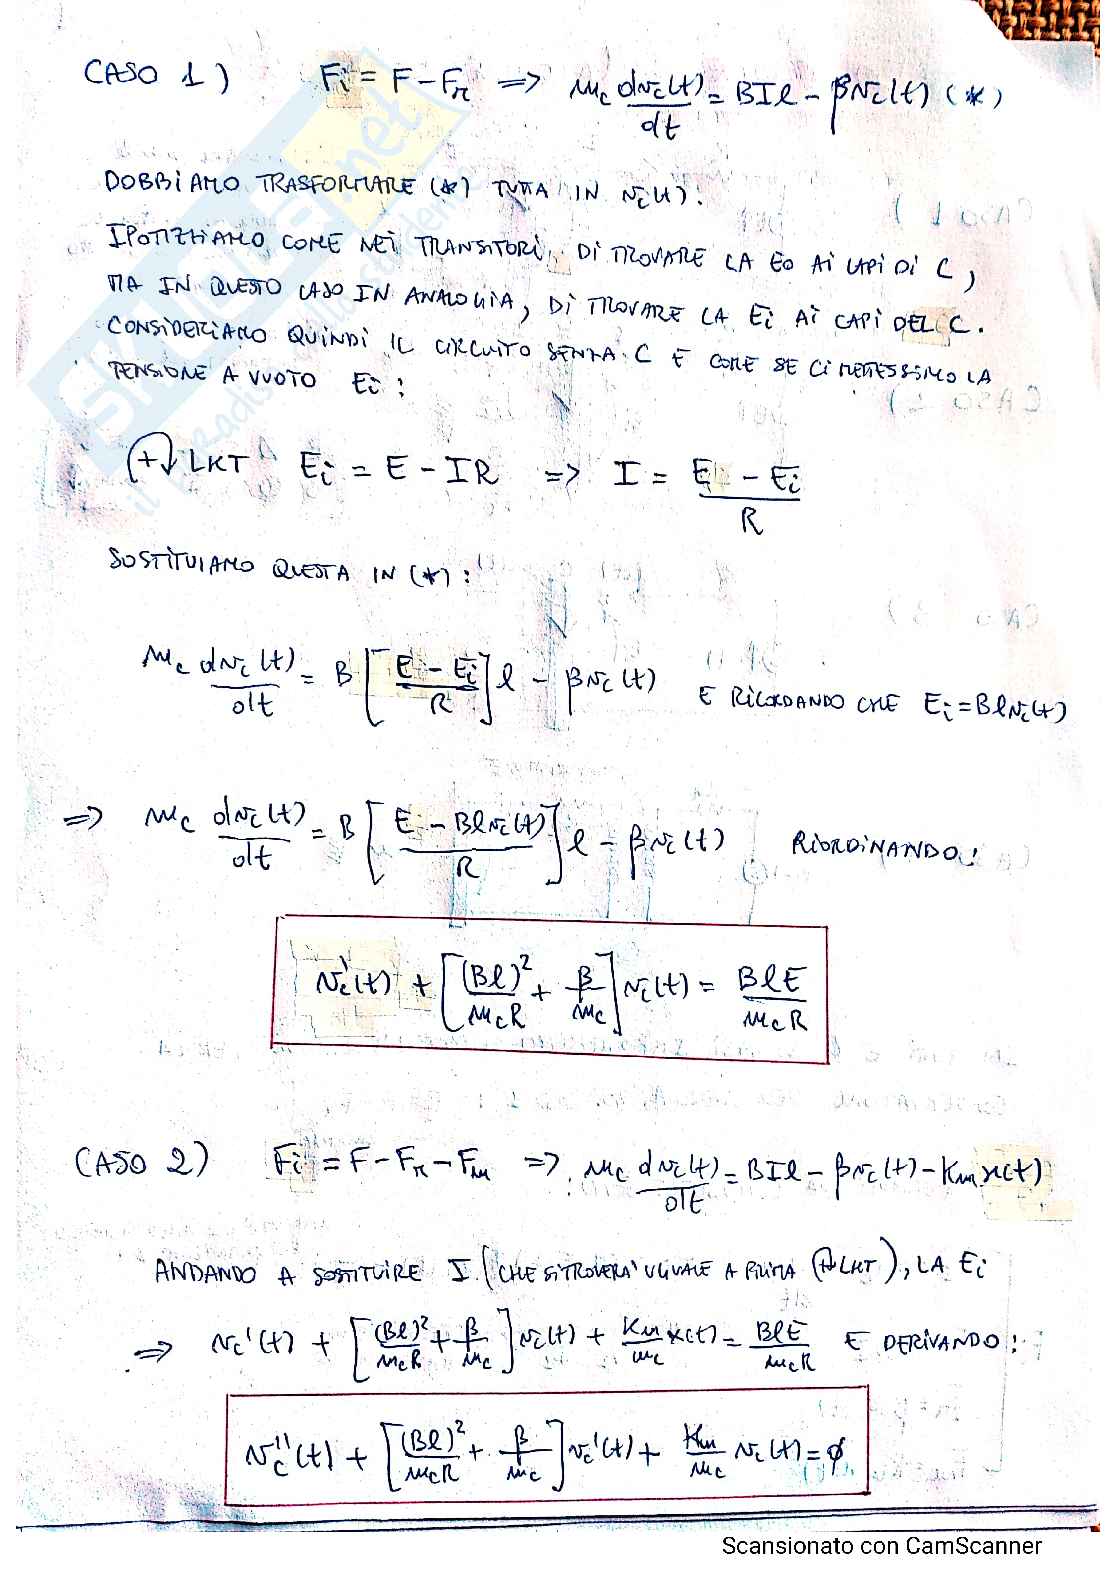 CASO 1) Fi = F - Fr => mc dvc(t)/dt = BIl - βvc(t) (*)
DOBBIAMO TRASFORMARE (*) TUTTA IN vc(t).
IPOTIZZIAMO, COME NEI TRANSITORI, DI TROVARE LA E0 AI CAPI DI C,
MA IN QUESTO CASO IN ANALOGIA, DI TROVARE LA Ei AI CAPI DEL C.
CONSIDERIAMO QUINDI IL CIRCUITO SENZA C E COME SE CI METTESSIMO LA
TENSIONE A VUOTO Ei:
(+↓ LKT Ei = E - IR => I = (E - Ei)/R
SOSTITUIAMO QUESTA IN (*):
mc dvc(t)/dt = B [(E - Ei)/R] l - βvc(t) E RICORDANDO CHE Ei = Blvc(t)
=> mc dvc(t)/dt = B [(E - Blvc(t))/R] l - βvc(t) RIORDINANDO:
vc'(t) + [(Bl)²/mcR + β/mc] vc(t) = BlE/mcR
CASO 2) Fi = F - Fr - Fm => mc dvc(t)/dt = BIl - βvc(t) - Km x(t)
ANDANDO A SOSTITUIRE I (CHE SI TROVERA' UGUALE A PRIMA (+↓ LKT), LA Ei
=> vc'(t) + [(Bl)²/mcR + β/mc] vc(t) + Km/mc x(t) = BlE/mcR E DERIVANDO:
vc''(t) + [(Bl)²/mcR + β/mc] vc'(t) + Km/mc vc(t) = ∅
Scansionato con CamScanner